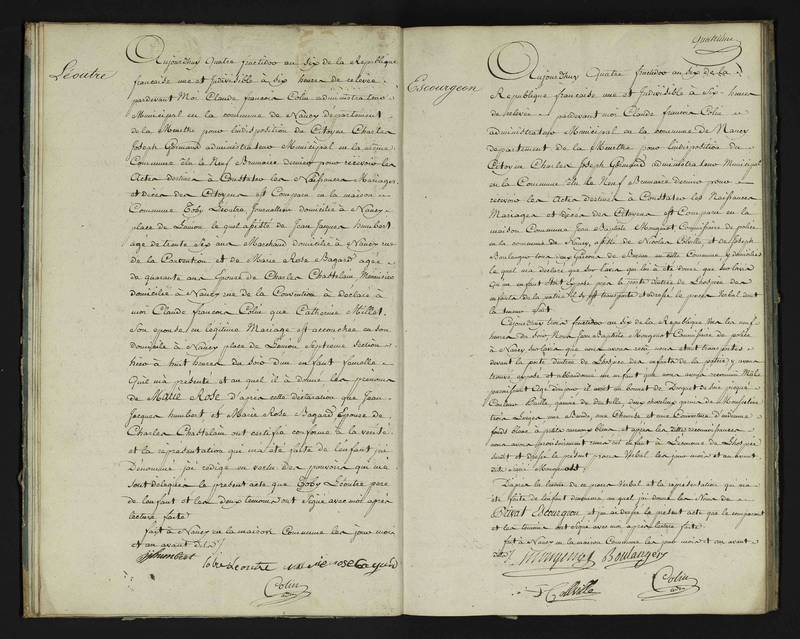 Léoutre
Aujourd'huy Quatre fructidor an Six de la République
française une et Indivisible à Six heures de relevée
pardevant Moi Claude francois Colin administrateur
Municipal en la commune de Nancy département
de la Meurthe pour lindisposition du Citoyen Charles
Joseph Germand administrateur Municipal en la meme
Commune élu le Neuf Brumaire dernier pour recevoir les
Actes destinés à Constater les Naissances Mariages
et décès des Citoyens est Comparu en la maison
Commune Toby Léoutre Journallier domicilié à Nancy
place de Lunion le quel assisté de Jean Jacques humbert
agé de trente Six ans Marchand domicilié à Nancy rue
de la Convention et de Marie Rose Bagard agée
de quarante ans Epouse de Charles Chastelain Menuisier
domicilié à Nancy rue de la Convention à déclaré à
moi Claude francois Colin que Catherine Millet
Son epouse en légitime Mariage est accouchée en son
domicile à Nancy place de Lunion Septieme Section
hier à huit heures du Soir d'un enfant femelle
Quil ma présenté et au quel il à donné les prénoms
de Marie Rose d'après cette déclaration que Jean
Jacques humbert et Marie Rose Bagard Epouse de
Charles Chastelain ont certifié conforme à la vérité
et la représentation qui ma été faite de lenfant sus
Dénommé jai rédigé en vertu des pouvoirs qui me
Sont délégués le présent acte que Toby Léoutre pere
de lenfant et les deux temoins ont Signé avec moi après
lecture faite
fait à Nancy en la maison Commune les jour mois
et an avant dits
JJhumbert
tobi Leoutre marie rose Bagard
Colin
adm
quatrieme
Escourgeon
Aujourd'huy Quatre fructidor an Six de la
République francaise une et Indivisible à Six heures
de relevée pardevant moi Claude francois Colin
administrateur Municipal en la commune de Nancy
département de la Meurthe pour lindisposition du
Citoyen Charles Joseph Germand administrateur Municipal
en la Commune élu le Neuf Brumaire dernier pour
recevoir les Actes destinés à Constater les Naissances
Mariages et décès des Citoyens est Comparu en la
maison Commune Jean Baptiste Mougenot Commissaire de police
en la commune de Nancy, assisté de Nicolas Colville et de Joseph
Boulanger tous deux de Bureau en cette Commune y domiciliés
le quel ma déclaré que sur lavis qui lui à été donné
Qu'un enfant étoit Exposé près la porte dentrée de Lhospice des
enfants de la patrie il sy est transporté et dressé le procès Verbal dont
la teneur suit
Cejourd'huy trois fructidor an Six de la République vers les neuf
heures du soir Nous Jean Baptiste Mougenot Commissaire de police
à Nancy sur lavis que nous avons reçu nous etant transportés
devant la porte dentrée de Lhospice des enfants de la patrie y avons
trouvé exposé et abandonné un enfant que nous avons reconnu Mâle
paroissant Agé dun jour il avoit un bonnet de Droguet de Soie piqué
Couleur Paille, garnie de dentelle, deux chevelux garnie de Mousseline
trois Langes une Bande, une Chemise et une Couverture d'indienne
fonds blanc à petites et après les dittes reconnoissances
nous avons provisoirement remis cet Enfant à Léconome de Lhospice
susdit et dressé le présent procès Verbal les jour mois et an avant
dits signé Mougenot
Dapres la lecture de ce procès Verbal et la représentation qui ma
été faite de lenfant denommé au quel jai donné les Noms de
Privat Escourgeon et jai dressé le présent acte que le comparant
et les temoins ont Signé avec moi après lecture faite
fait à Nancy en la maison Commune les jour mois et an avant
dits
Mougenot Boulanger
Colville
Colin
adm